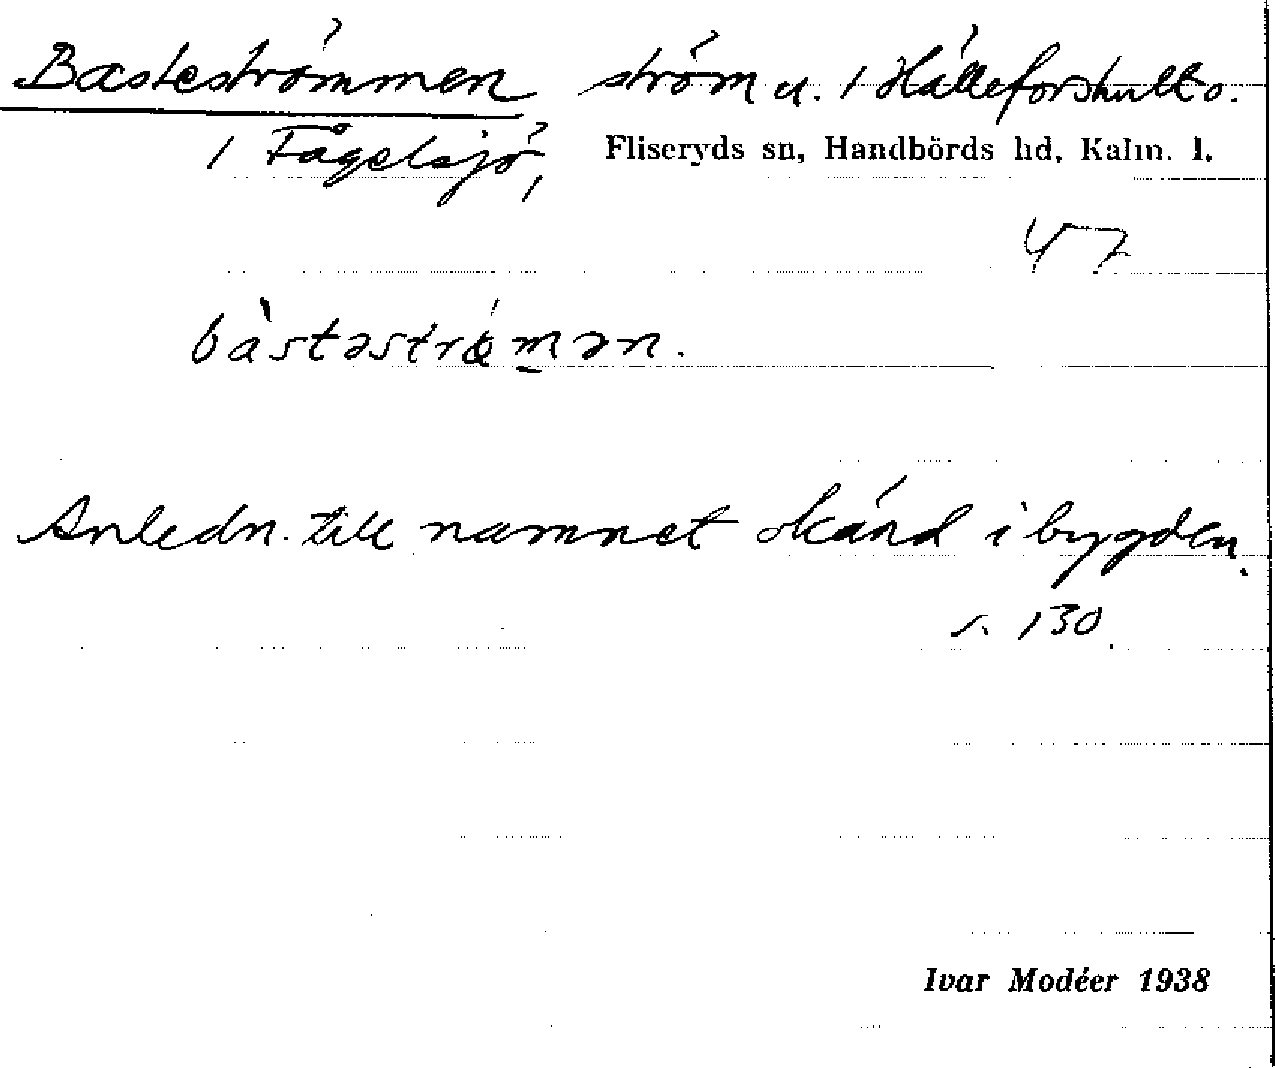 Basteströmmen ström u. i Hälleforshult o.
i Fågelsjö, Fliseryds sn, Handbörds hd, Kalm. l.
47
bàstəstrǿmən.
Anledn. till namnet okänd i bygden.
s. 130.
Ivar Modéer 1938